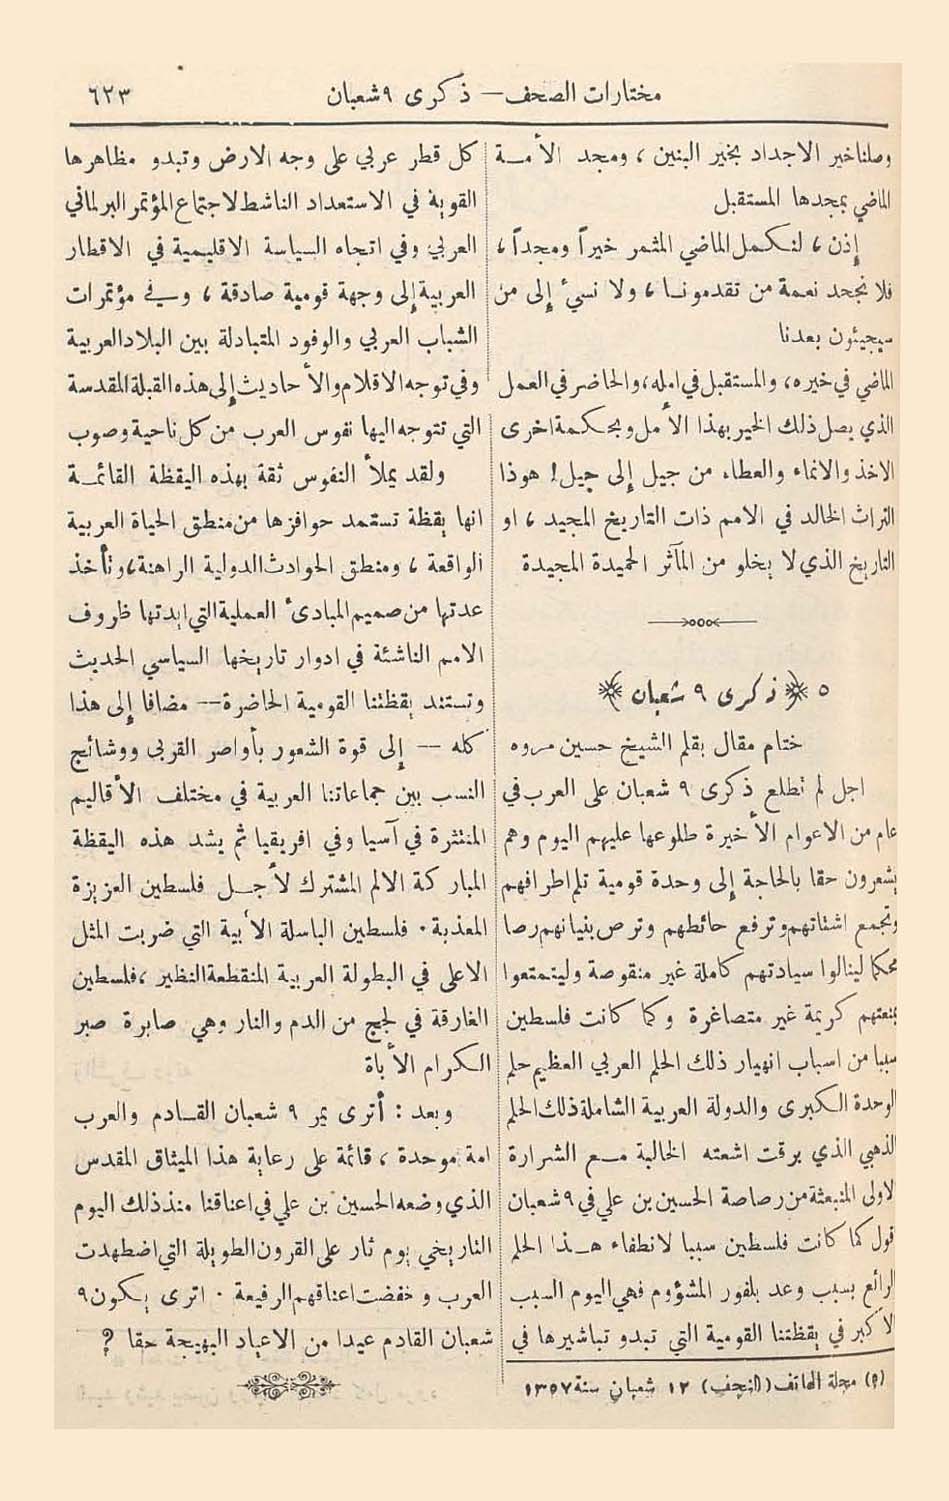 مختارات الصحف — ذكرى ٩ شعبان
٦٢٣
وصلناخير الاجداد بخير البنين ، ومجد الأمـــة
الماضي بمجدها المستقبل
إذن ، لنكمل الماضي المثمر خيراً ومجداً ،
فلا نجحد نعمة من تقدمونا ، ولا نسيء إلى من
سيجيئون بعدنا
الماضي في خيره، والمستقبل في امله، والحاضر في العمل
الذي يصل ذلك الخير بهذا الأمل وبحكمة اخرى
الاخذ والانماء والعطاء من جيل إلى جيل! هوذا
التراث الخالد في الامم ذات التاريخ المجيد ، او
التاريخ الذي لا يخلو من المآثر الحميدة المجيدة
٥ ﴿ ذكرى ٩ شعبان ﴾
ختام مقال بقلم الشيخ حسين مروه
اجل لم تطلع ذكرى ٩ شعبان على العرب في
عام من الاعوام الأخيرة طلوعها عليهم اليوم وهم
يشعرون حقا بالحاجة إلى وحدة قومية تلم اطرافهم
وتجمع اشتاتهم وترفع حائطهم وترص بنيانهم رصا
محكما لينالوا سيادتهم كاملة غير منقوصة وليتمتعوا
بنعتهم كريمة غير متصاغرة وكما كانت فلسطين
سببا من اسباب انهيار ذلك الحلم العربي العظيم حلم
الوحدة الكبرى والدولة العربية الشاملة ذلك الحلم
الذهبي الذي برقت اشعته الخالبة مع الشرارة
الاولى المنبعثة من رصاصة الحسين بن علي في ٩ شعبان
قول كما كانت فلسطين سببا لانطفاء هذا الحلم
الرائع بسبب وعد بلفور المشؤوم فهي اليوم السبب
الأكبر في يقظتنا القومية التي تبدو تباشيرها في
(٥) مجلة الهاتف (النجف) ١٢ شعبان سنة ١٣٥٧
كل قطر عربي على وجه الارض وتبدو مظاهرها
القوية في الاستعداد الناشط لاجتماع المؤتمر البرلماني
العربي وفي اتجاه السياسة الاقليمية في الاقطار
العربية إلى وجهة قومية صادقة ، وفي مؤتمرات
الشباب العربي والوفود المتبادلة بين البلاد العربية
وفي توجه الاقلام والأحاديث إلى هذه القبلة المقدسة
التي تتوجه اليها نفوس العرب من كل ناحية وصوب
ولقد يملأ النفوس ثقة بهذه اليقظة القائمــة
انها يقظة تستمد حوافزها من منطق الحياة العربية
الواقعة ، ومنطق الحوادث الدولية الراهنة، وتأخذ
عدتها من صميم المبادىء العملية التي ايدتها ظروف
الامم الناشئة في ادوار تاريخها السياسي الحديث
وتستند يقظتنا القومية الحاضرة — مضافا إلى هذا
كله — إلى قوة الشعور بأواصر القربى ووشائج
النسب بين جماعاتنا العربية في مختلف الأقاليم
المنتثرة في آسيا وفي افريقيا ثم يشد هذه اليقظة
المباركة الالم المشترك لأجل فلسطين العزيزة
المعذبة . فلسطين الباسلة الأبية التي ضربت المثل
الاعلى في البطولة العربية المنقطعة النظير ، فلسطين
الغارقة في لجج من الدم والنار وهي صابرة صبر
الكرام الأباة
وبعد : أترى يمر ٩ شعبان القادم والعرب
امة موحدة ، قائمة على رعاية هذا الميثاق المقدس
الذي وضعه الحسين بن علي في اعناقنا منذ ذلك اليوم
التاريخي يوم ثار على القرون الطويلة التي اضطهدت
العرب وخفضت اعناقهم الرفيعة . اترى يكون ٩
شعبان القادم عيدا من الاعياد البهيجة حقا ؟